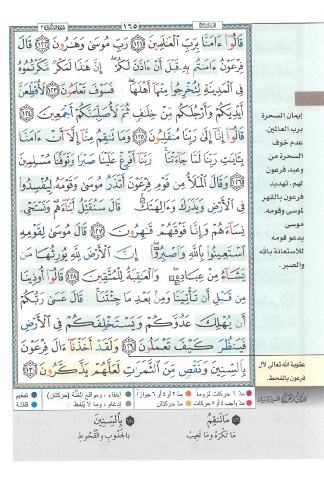 ١٦٥
قَالُوٓا۟ ءَامَنَّا بِرَبِّ ٱلْعَٰلَمِينَ ١٢١ رَبِّ مُوسَىٰ وَهَٰرُونَ ١٢٢ قَالَ
فِرْعَوْنُ ءَامَنتُم بِهِۦ قَبْلَ أَنْ ءَاذَنَ لَكُمْ ۖ إِنَّ هَٰذَا لَمَكْرٌ مَّكَرْتُمُوهُ
فِى ٱلْمَدِينَةِ لِتُخْرِجُوا۟ مِنْهَآ أَهْلَهَا ۖ فَسَوْفَ تَعْلَمُونَ ١٢٣ لَأُقَطِّعَنَّ
أَيْدِيَكُمْ وَأَرْجُلَكُم مِّنْ خِلَٰفٍ ثُمَّ لَأُصَلِّبَنَّكُمْ أَجْمَعِينَ ١٢٤
قَالُوٓا۟ إِنَّآ إِلَىٰ رَبِّنَا مُنقَلِبُونَ ١٢٥ وَمَا تَنقِمُ مِنَّآ إِلَّآ أَنْ ءَامَنَّا
بِـَٔايَٰتِ رَبِّنَا لَمَّا جَآءَتْنَا ۚ رَبَّنَآ أَفْرِغْ عَلَيْنَا صَبْرًا وَتَوَفَّنَا مُسْلِمِينَ
١٢٦ وَقَالَ ٱلْمَلَأُ مِن قَوْمِ فِرْعَوْنَ أَتَذَرُ مُوسَىٰ وَقَوْمَهُۥ لِيُفْسِدُوا۟
فِى ٱلْأَرْضِ وَيَذَرَكَ وَءَالِهَتَكَ ۚ قَالَ سَنُقَتِّلُ أَبْنَآءَهُمْ وَنَسْتَحْىِۦ
نِسَآءَهُمْ وَإِنَّا فَوْقَهُمْ قَٰهِرُونَ ١٢٧ قَالَ مُوسَىٰ لِقَوْمِهِ
ٱسْتَعِينُوا۟ بِٱللَّهِ وَٱصْبِرُوٓا۟ ۖ إِنَّ ٱلْأَرْضَ لِلَّهِ يُورِثُهَا مَن
يَشَآءُ مِنْ عِبَادِهِۦ ۖ وَٱلْعَٰقِبَةُ لِلْمُتَّقِينَ ١٢٨ قَالُوٓا۟ أُوذِينَا
مِن قَبْلِ أَن تَأْتِيَنَا وَمِنۢ بَعْدِ مَا جِئْتَنَا ۚ قَالَ عَسَىٰ رَبُّكُمْ
أَن يُهْلِكَ عَدُوَّكُمْ وَيَسْتَخْلِفَكُمْ فِى ٱلْأَرْضِ
فَيَنظُرَ كَيْفَ تَعْمَلُونَ ١٢٩ وَلَقَدْ أَخَذْنَآ ءَالَ فِرْعَوْنَ
بِٱلسِّنِينَ وَنَقْصٍ مِّنَ ٱلثَّمَرَٰتِ لَعَلَّهُمْ يَذَّكَّرُونَ ١٣٠
إيمان السحرة
برب العالمين.
عدم خوف
السحرة من
وعيد فرعون
لهم، تهديد
فرعون بالقهر
لموسى وقومه،
موسى
يدعو قومه
للاستعانة بالله
والصبر.
عقوبة الله تعالى لآل
فرعون بالقحط.
مدّ ٦ حركات لزوماً مدّ ٢ أو ٤ أو ٦ جوازاً إخفاء، ومواقع الغُنَّة (حركتان) تفخيم
مدّ واجب ٤ أو ٥ حركات مدّ حركتان إدغام، وما لا يُلفَظ قلقلة
مَا تَنْقِمُ
مَا تَكْرَهُ وَمَا تَعِيبُ
بِالسِّنِينَ
بِالْجُدُوبِ وَالْقُحُوطِ